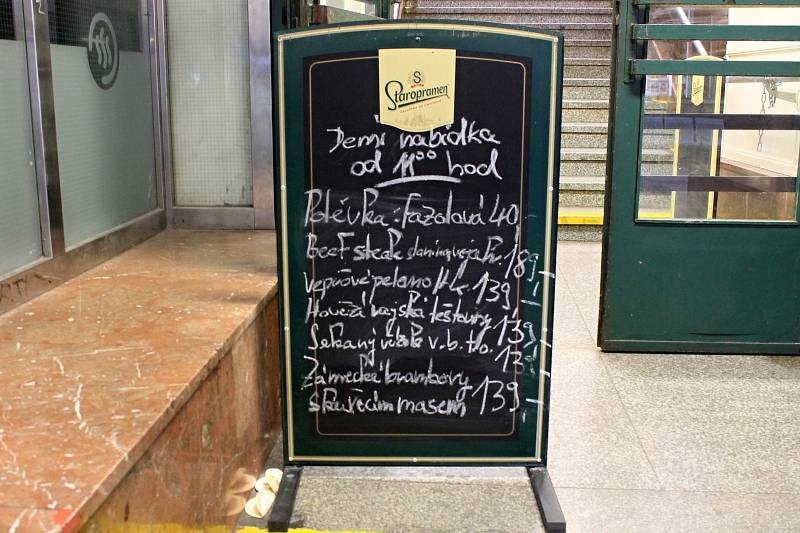 S
Staropramen
Denní nabídka
od 11⁰⁰ hod
Polévka: Fazolová 40,-
Beef steak slanina vejce 189,-
Vepřové pelano 139,-
Hovězí rajská těstoviny 139,-
Sekaný v.b. 139,-
Zámecké brambory
s kuřecím masem 139,-